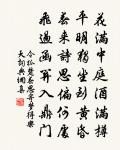 花滿中庭酒滿樽
平明獨坐到黃昏
春來詩思偏何處
飛過函關入鼎門
令狐楚春思寄夢得樂
天詞典網集